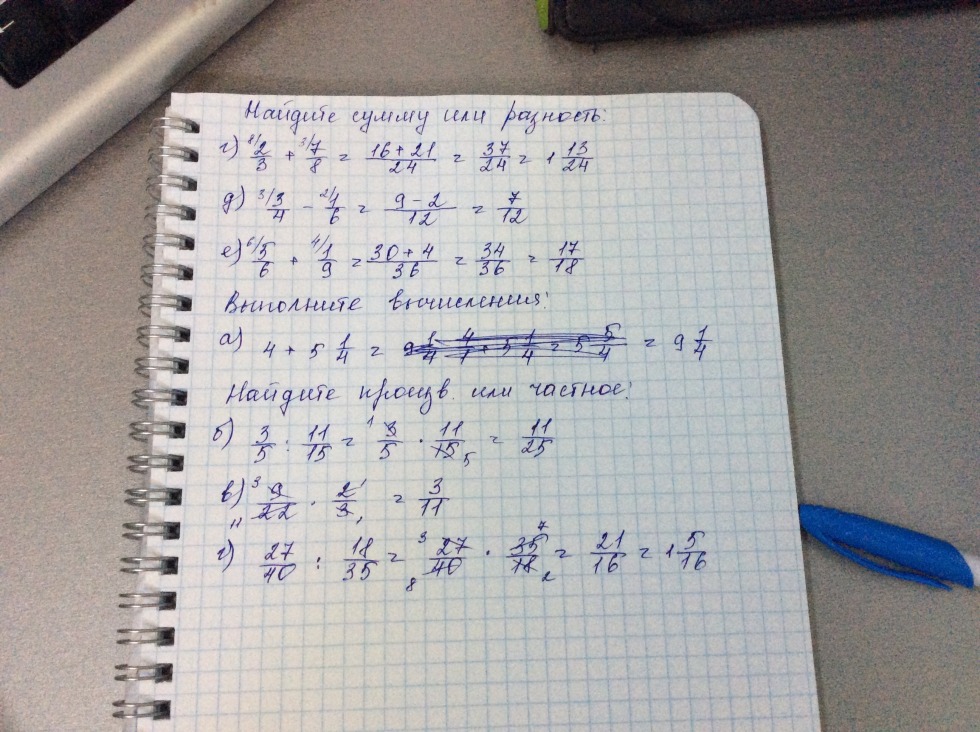 Найдите сумму или разность:
г) 8/2/3 + 3/7/8 = 16+21/24 = 37/24 = 1 13/24
д) 3/3/4 - 2/1/6 = 9-2/12 = 7/12
е) 6/5/6 + 4/1/9 = 30+4/36 = 34/36 = 17/18
Выполните вычисления:
а) 4 + 5 1/4 = = 9 1/4
Найдите произв. или частное:
б) 3/5 : 11/15 = 1 3/5 · 11/15 5 = 11/25
в) 3 9/22 11 · 2/3 1 1 = 3/11
г) 27/40 : 18/35 = 3 27/40 8 · 35/18 7 2 = 21/16 = 1 5/16